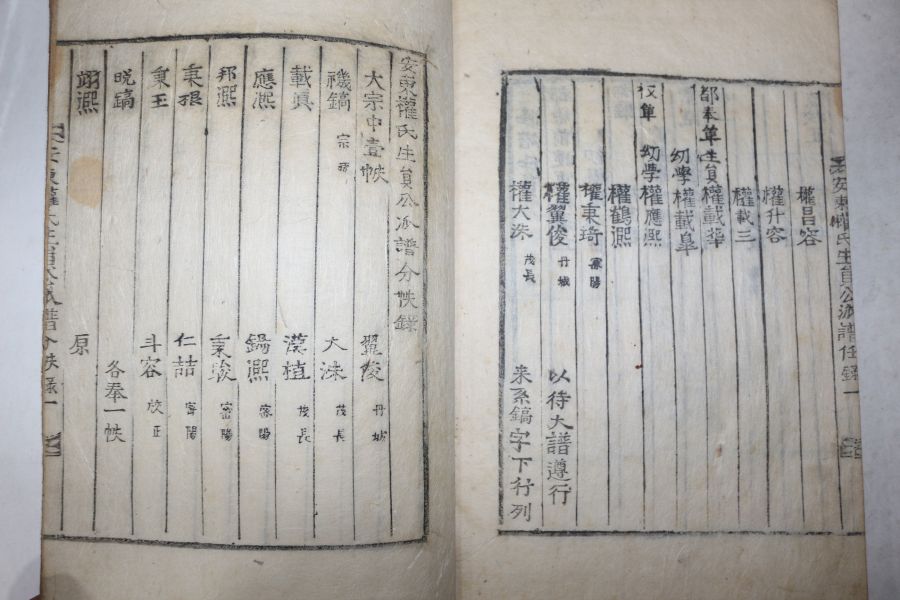 安東權氏生員公派譜任錄 一
權昌容
權升容
權載三
都奉單 生員 權載華
幼學 權載皐
收單 幼學 權應凞
權鶴凞
權秉琦 密陽
權翼俊 丹城 以待大譜遵行
權大洙 茂長 来系鎬字下行列
安東權氏生員公派譜分帙錄
大宗中壹帙 翼俊 丹城
禨鎬 宗孫 大洙 茂長
載眞 漢植 茂長
應凞 鍋凞 密陽
邦凞 秉駿 密陽
秉琅 仁喆 密陽
秉玉 斗容 校正
晩鎬 各奉一帙
翊凞 原
安東權氏生員公派譜分帙錄 一